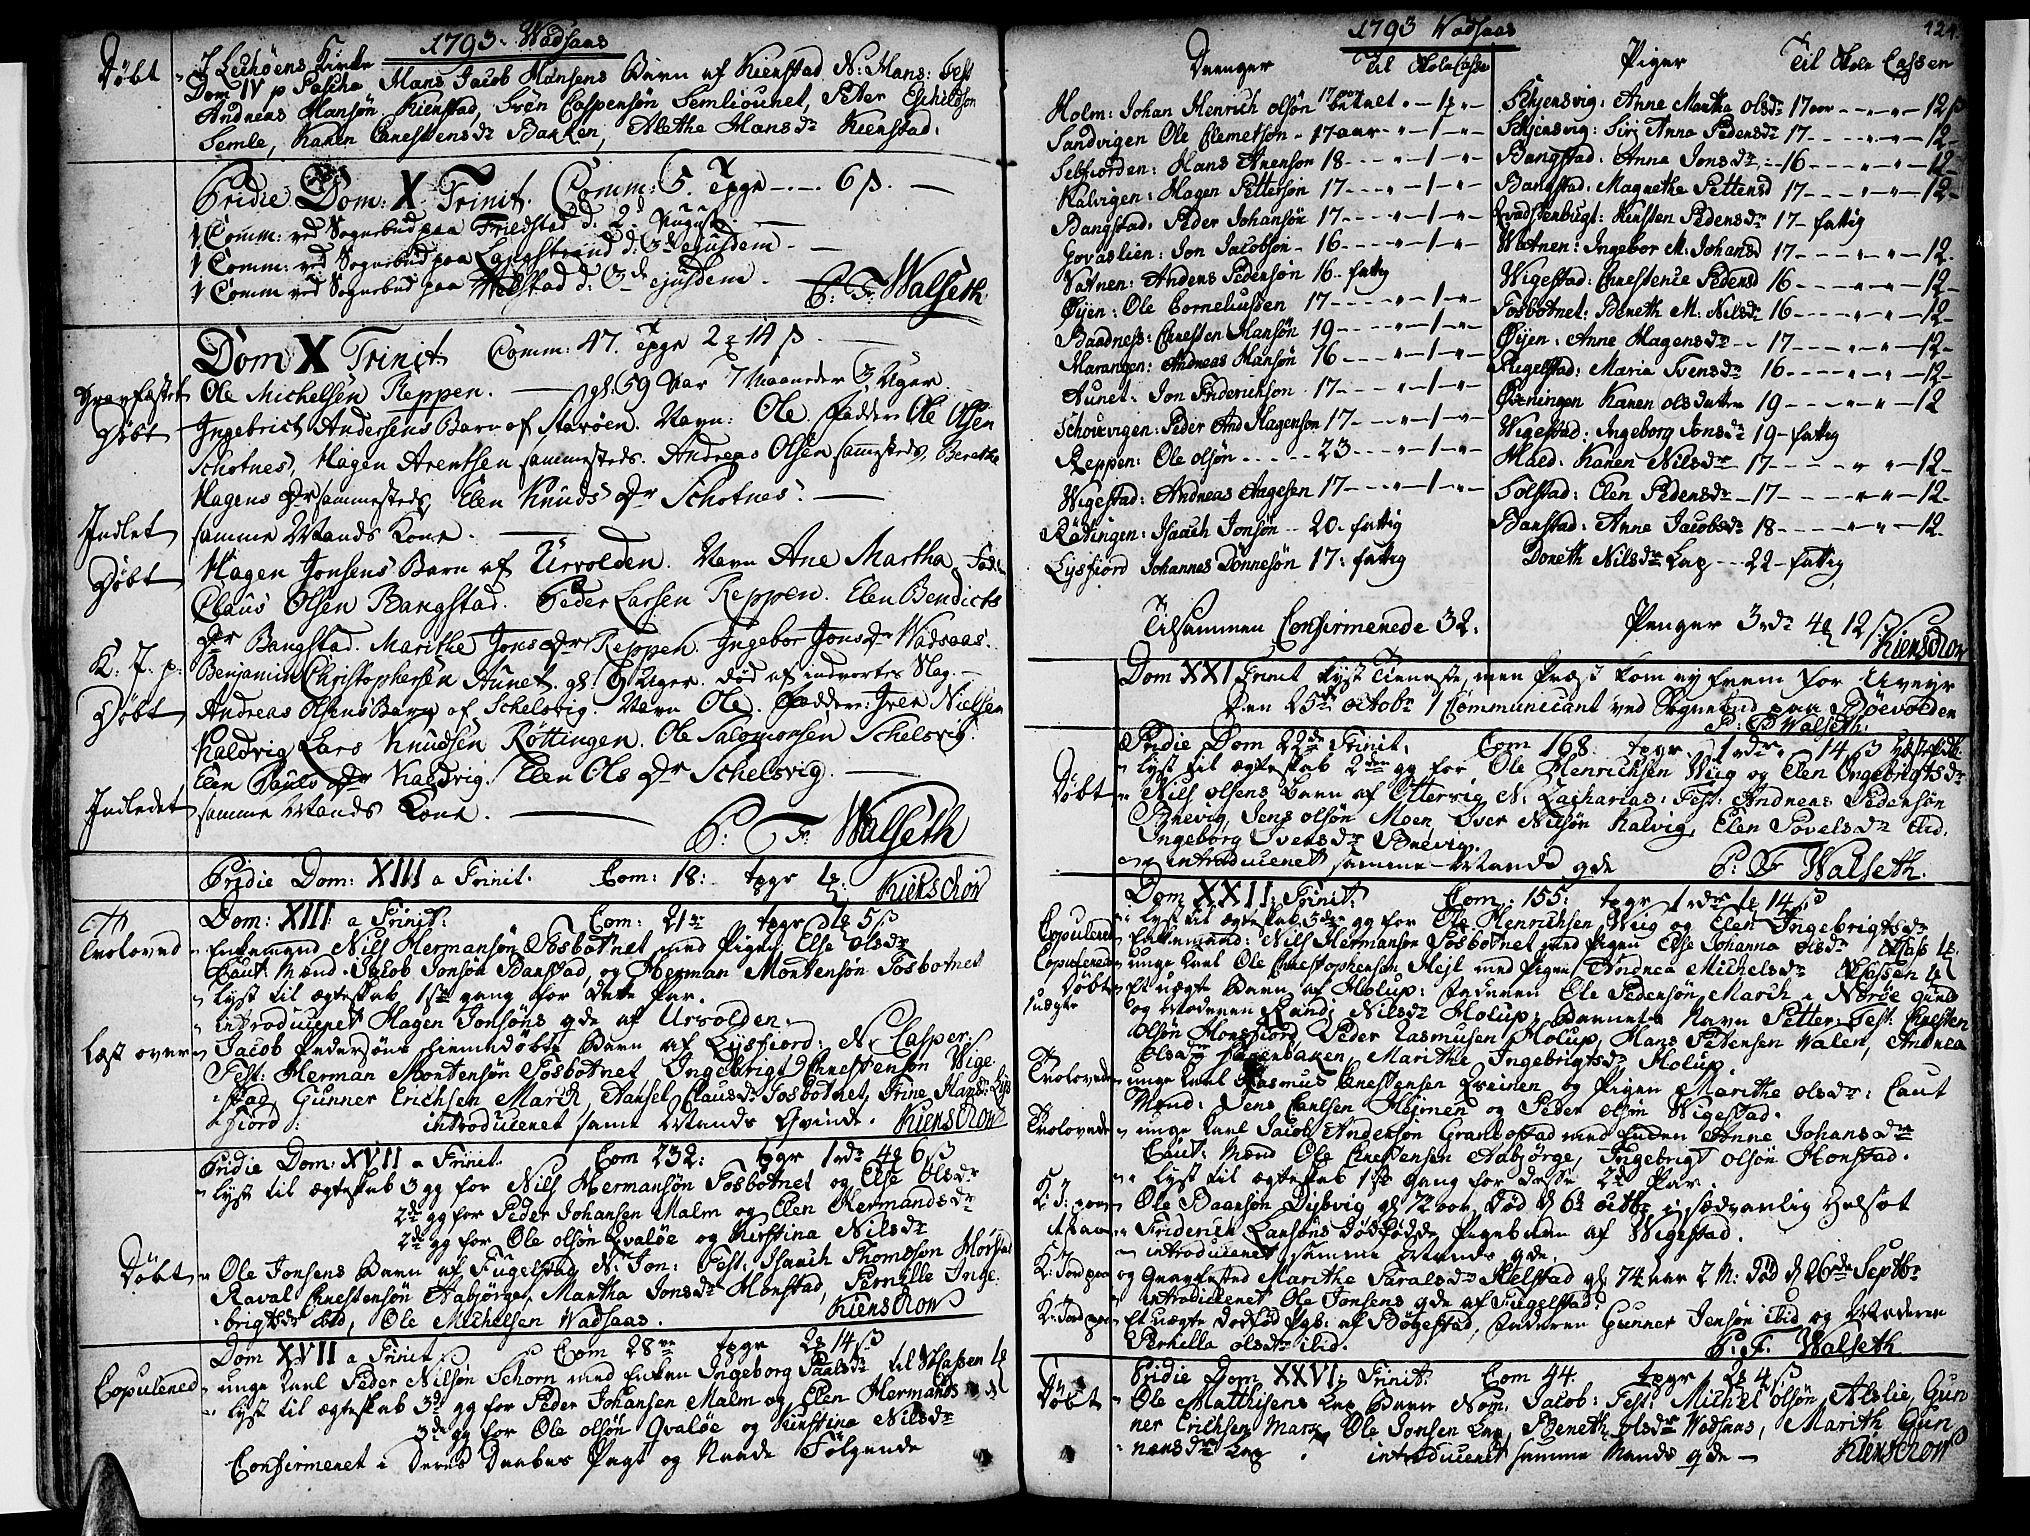 1793. Wadsaas
Døbt
I Lechøens Kirke
Dom IV p Pascha Hans Jacob Hansens Barn af Kienstad N: Hans: Fest
Andreas Hansøn Kienstad, Svën Caspersøn Semliounet, Peter Eschildsøn
Semle, Karen Christensdr Bakken, Alethe Hansdr Kienstad.
Pridie Dom: X Trinit. Comm: 5. Tpgr --- 6 β. —
1 Comm: ved Sognebud paa Friedstad d: 2d August —
1 Comm: ved Sognebud paa Langstrand d: 3de ejusdem. —
1 Comm ved Sognebud paa Welstad d: 3de ejusdem.
P: F: Walseth
Dom X Trinit. Comm: 47. Tpgr 2 14 β. —
Gravfæstet Ole Michelsen Reppen. — gl: 59 Aar 7 Maaneder 3 Uger.
Døbt Ingebrict Andersens Barn af Starøen. Navn: Ole. Fadder: Ole Olsen
Schotnes, Hagen Arentsen sammesteds. Andreas Olsen samesteds, Berethe
Hagens Dr sammesteds, Elen Knuds Dr Schotnes. —
Indlet samme Mands Kone. —
Døbt Hagen Jonsens Barn af Urvolden. Navn Ane Martha, Fadd:
Claus Olsen Bangstad. Peder Larsen Reppen. Elen Bendicts
Dr Bangstad. Marithe Jons Dr Reppen. Ingebor Jons Dr Wadsaas.
K. J. p. Benjamin Christophersen Aunet. gl: 9 Uger. død af indvortes Slag. —
Døbt Andreas Olsens Barn af Schelsvig. Navn Ole. Fadder: Iver Nielsen
Kaldvig Lars Knudsen Röttingen. Ole Salomonsen Schelsvig.
Elen Pauls Dr Kaldvig. Elen Ols Dr Schelsvig. —
Indledet samme Mands Kone. —
P: F: Walseth
Pridie Dom: XIII a Trinit. Com: 18: tpgr 1
Kierschow
Dom: XIII a Trinit. Com: 21 tpgr 5 β
Troloved Enkemand Nils Hermansøn Fosbotnet med Pigen Else Olsdr
Caut: Mænd Jacob Jonsøn Banstad, og Herman Mortensøn Fosbotnet
lyst til ægteskab 1ste gang for dette Par.
introduceret Hagen Jonsøns qde af Urvolden.
Læst over Jacob Pedersøns hiemedøbte Barn af Lysfiord: N: Casper:
Fest: Herman Mortensøn Fosbotnet Ingebrigt Christensøn Wige
stad, Gunner Erichsen March, Hansel Clausdr Fosbotnet, Trine Hansdr Lys
fiord: introduceret samme Mands Qvinde. Kierschow
Pridie Dom: XVII a Trinit. Com 232: tpgr 1 rdr 4 6 β
lyst til ægteskab 3 gg for Nils Hermansøn Fosbotnet og Else Olsdr
2de gg for Peder Johansen Malm og Elen Hermansdr
2de gg for Ole Olsøn Qvaløe og Kirstina Nilsdr
Døbt Ole Jonsens Barn af Fugelstad N: Jon: Fest: Isaach Thomesøn Horstad
Raval Christensøn Aabjørge, Martha Jonsdr Horstad, Pernille Inge
brigtsdr ibid, Ole Michelsen Wadsaas. Kierschow
Dom XVII a Trinit. Com 28 tpgr 2 14 β
Copulered unge Karl Peder Nilsøn Schorn med Enken Ingeborg Paalsdr til Skassen 1
lyst til ægteskab 3de gg for Peder Johansen Malm og Elen Hermansdr
3de gg for Ole Olsøn Qvaløe og Kirstina Nilsdr
Confirmeret i Deres Daabes Pagt og Naade Følgende
1793 Wadsaas
124
Drenger Til Skole Cassen
Holm: Johan Henrich Olsøn 17 aar betalt - 1 -
Sandvigen Ole Clemetsøn - 17 aar - 1 -
Sebfiorden: Hans Arensøn 18 - 1 -
Kalvigen: Hagen Pettersøn 17 - 1 -
Bangstad: Peder Johansøn 17 - 1 -
Govaslien: Jon Jacobsøn - 16 - 1 -
Vatnen: Anders Pedersøn 16. fattig
Øyen: Ole Corneliussen 17 - 1 -
Baadnes: Christen Hansøn 19 - 1 -
Marangen: Andreas Hansøn 16 - 1 -
Aunet: Jon Friderichsøn 17 - 1 -
Schouvigen: Peder And Hagensøn 17 - 1 -
Reppen: Ole Olsøn - 23 - 1 -
Wigestad: Andreas Aagesen 17 - 1 -
Røttingen: Isaach Jonsøn - 20 - fattig
Lysfiord Johannes Dønnesøn 17: fattig
Piger Til Skole Cassen
Schjensvig: Anne Martha Olsdr 17 aar - 12 β
Schjensvig: Siri Anna Pedersdr 17 - 12 -
Bangstad: Anna Jonsdr - 16 - 12 -
Bangstad: Magrethe Pettersd 17 - 12 -
Qvadstenbugt: Kirsten Pedersdr 17 - fattig
Watnen: Ingebor M: Johansd 17 - 12.
Wigestad: Christence Pedersd 16 - 12 -
Fosbotnet: Bereth M: Nilsdr 16 - 12 -
Øyen: Anne Hagensdr - 17 - 12 -
Fugelstad: Maria Svensdr 16 - 12 -
Karen Olsdatter 19 - 12
Wigestad: Ingeborg Jonsdr 19 - fattig
Maed: Karen Nilsdr - 17 - 12 -
Solstad: Elen Pedersdr - 17 - 12 -
Banstad: Anne Jacobsdr 18 - 12 -
Doreth Nilsdr Lap - 22 - fattig
Tilsammen Confirmerede 32. Penger 3 rdr 4 12 β Kierschow
Dom XXI Trinit lyst Tieneste, men Præst kom ey frem for Uveyr
Den 25de Octobr 1 Communicant ved Sognebud paa Bøevolden
P: F: Walseth.
Pridie Dom 22de Trinit. Com 168. tpgr 1 rdr. 14 β
lyst til ægteskab 2den gg for Ole Henrichsen Wiig og Elen Ingebrigtsdr
Døbt Nils Olsens Barn af Ottervig N: Zacharias: Fest: Andreas Pedersøn
Brevig, Jens Olsøn Moen, Iver Nilsøn Kalvig, Elen Povelsdr ibid.
Ingeborg Iversdr Brevig.
introduceret samme Mands qde P: F Walseth.
Dom XXII: Trinit. Com: 155: tpgr 1 rdr 1 14 β
lyst til ægteskab 3de gg for Ole Henrichsen Wiig og Elen Ingebrigtsdr
Copulered Enkemand: Nils Hermansøn Fosbotnet med Pigen Else Johanna Olsdr
Copulered unge Karl Ole Christophersen Hejl med Pigen Andrea Michelsdr
Døbt Et uægte Barn af Holup: Faderen Ole Pedersøn March i Nærøe Gield
uægte og Moderen Randi Nilsdr Holup, Barnets Navn Petter: Fest: Christen
Olsøn Horsfiord, Peder Rasmusen Holup, Hans Petersen Walen, Andrea
Olsdr Fagerbakken, Marithe Ingebrigtsdr Holup.
Trolovede unge Karl Rasmus Christensen Qveinen og Pigen Marithe Olsdr: Caut
Mænd: Jens Carlsen Højnen og Peder Olsøn Wigestad.
Trolovede unge Karl Jacob Andersøn Granbostad med Enken Anne Johansdr
Caut: Mænd Ole Christensen Aabjørge, Ingebrigt Olsøn Horstad.
lyst til ægteskab 1ste gang for disse 2de Par.
K: J: paa Ole Baarsøn Dybvig gl 72 aar, død d 6te Octbr i sædvanlig Helsot
Friderich Larsøns Dødfødde Pigebarn af Wigestad.
introduceret samme Mands qde.
K: Jord paa og Gravfæsted Marithe Taralsdr Helstad gl: 74 aar 2 M: død d 26de Septbr
introduceret Ole Jonsens qde af Fugelstad.
K: Jord paa Et uægte dødfød af Bøgestad, Faderen Gunner Jensøn ibid og Moderen
Pernilla Olsdtr ibid. P: F. Walseth
Pridie Dom XXVI; Trinit. Com 44. tpgr 2 4 β
Døbt Ole Matthisens Lap Barn Nom: Jacob: Fest: Michel Olsøn Aslie, Gun
ner Erichsen March, Ole Jonsen Lap, Bereth Olsdr Wadsaas, Marith Gun
nersdr Lap. introduceret samme Mands qde — Kierschow